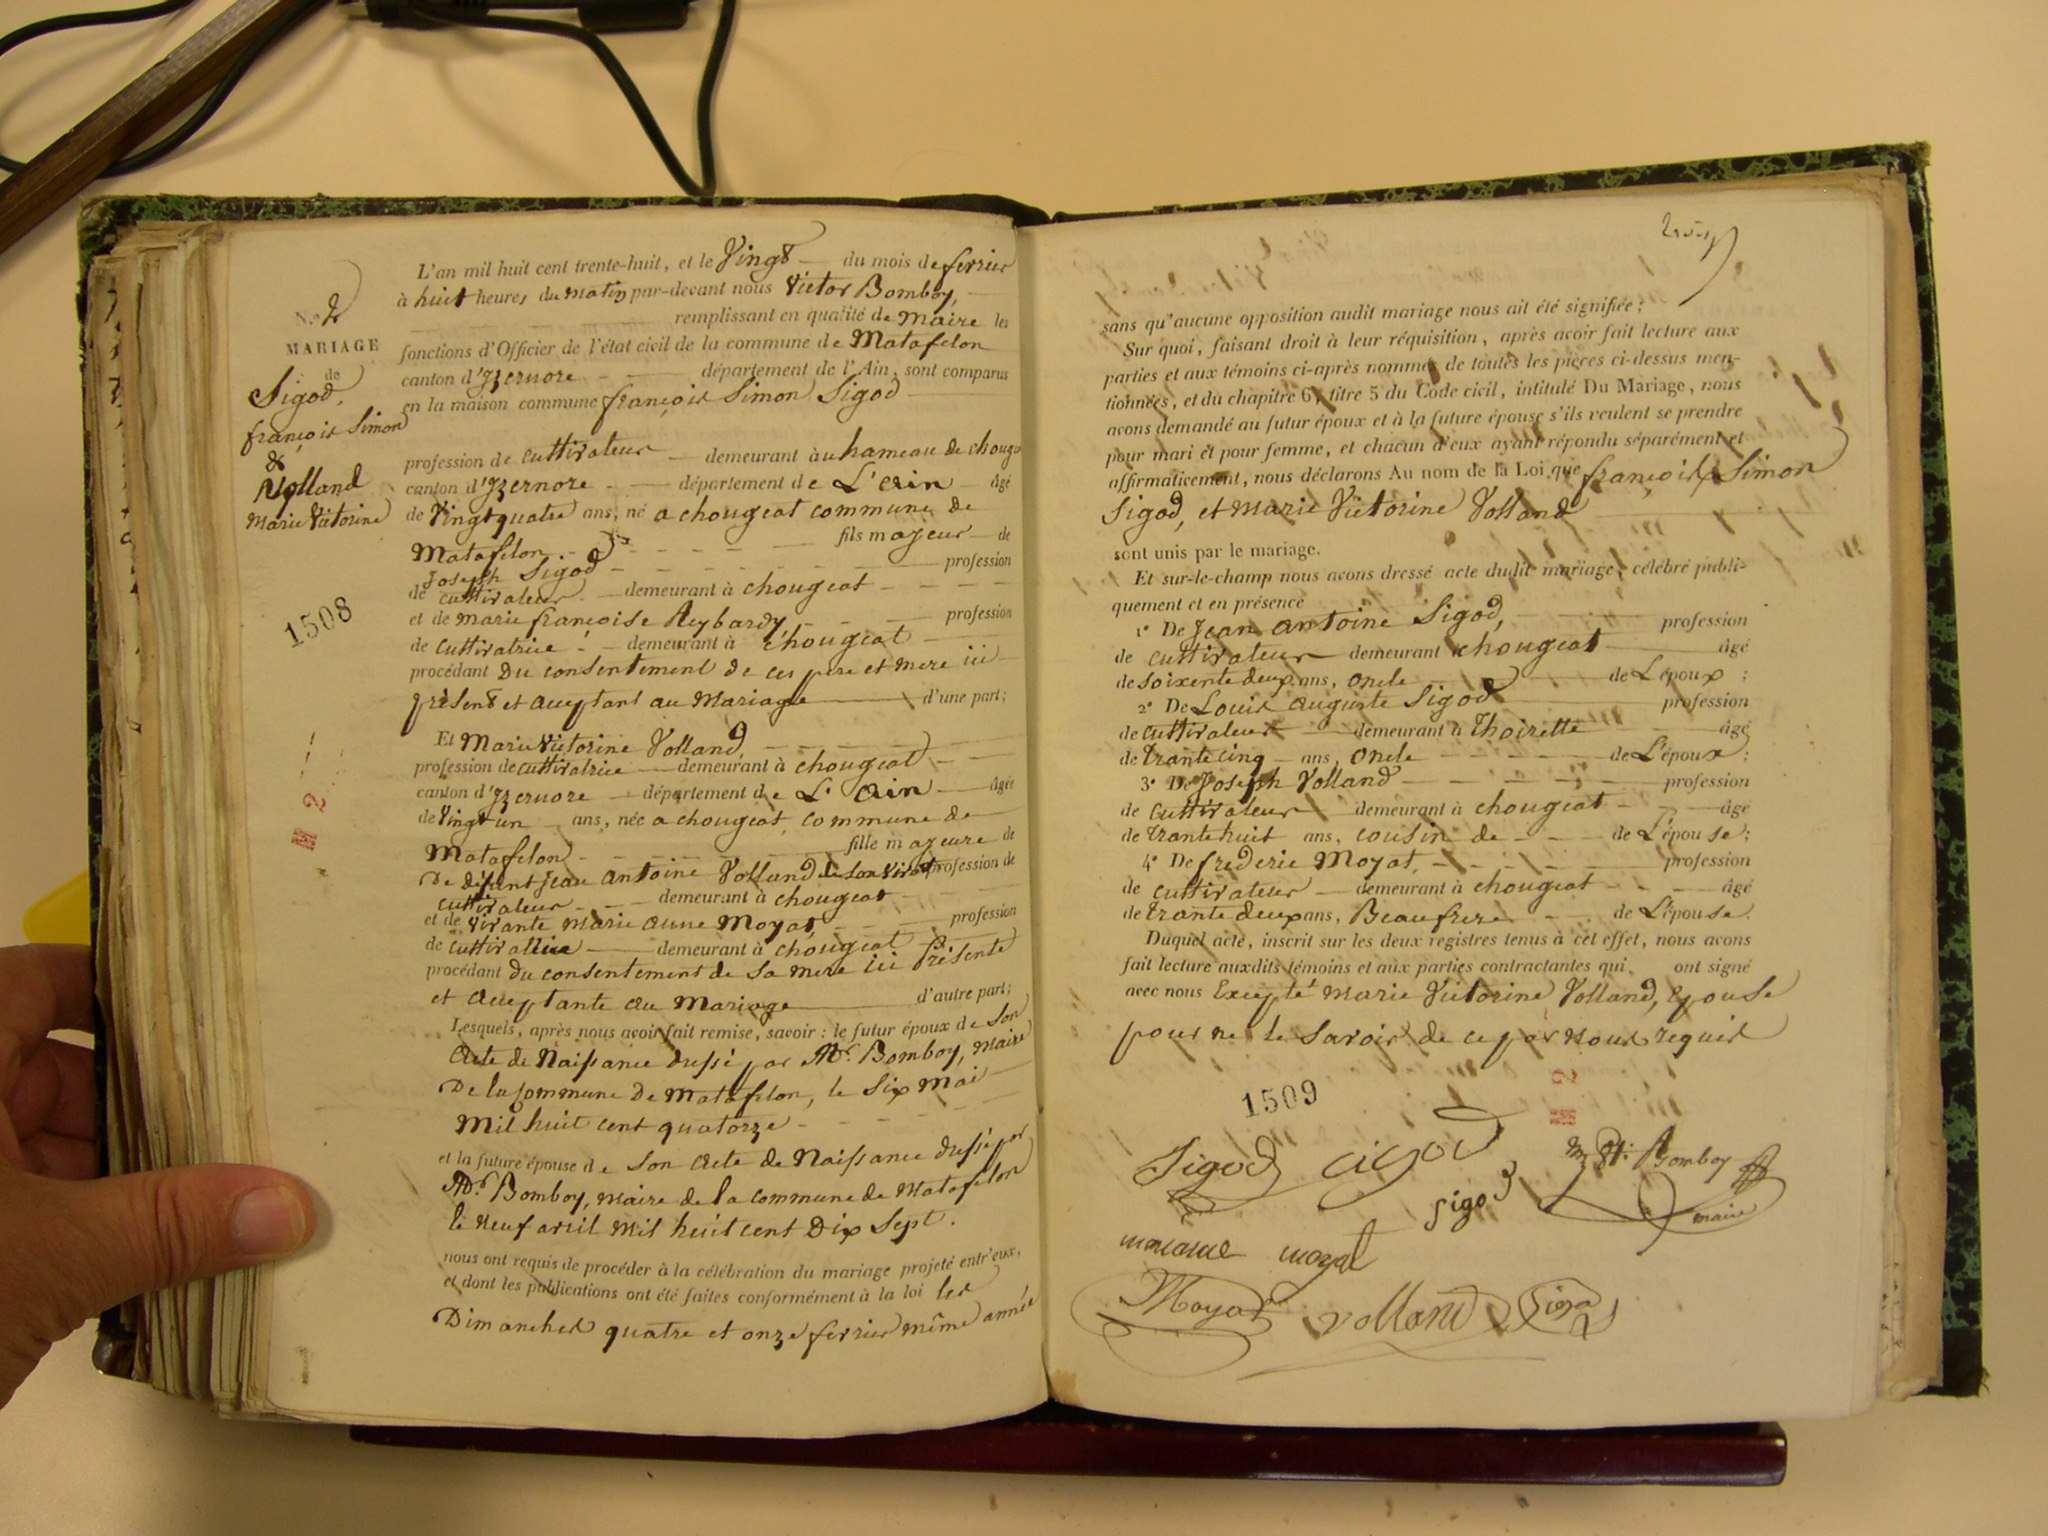 N.o 2
MARIAGE
de
Sigod,
françois Simon
&
Volland
Marie Victorine
1508
L'an mil huit cent trente-huit, et le Vingt du mois de ferrier
à huit heures du matin par-devant nous Victor Bomboy,
remplissant en qualité de maire les
fonctions d'Officier de l'état civil de la commune de Matafelon
canton d'Izernore département de l'Ain, sont comparus
en la maison commune françois Simon Sigod
profession de cultivateur demeurant à au hameau de chouga
canton d'Izernore département de L'ain âgé
de Vingt quatre ans, né a chougeat commune de
Matafelon fils mayeur de
Joseph Sigod profession
de cultivateur demeurant à chougeat
et de marie françoise Reybardy profession
de cultivatrice demeurant à chougeat
procédant Du consentement de ces pere et mere ici
présent et acceptant au Mariage d'une part;
Et Marie Victorine Volland,
profession de cultivatrice demeurant à chougeat
canton d'Izernore département de L'ain âgée
de Vingt un ans, née a chougeat, commune de
Matafelon fille mayeure de
De défunt Jean antoine Volland de son vivant profession de
cultivateur demeurant à chougeat
et de vivante marie anne Moyat, profession
de cultivatrice demeurant à chougeat
procédant du consentement de sa mere ici Présente
et acceptante au Mariage d'autre part;
Lesquels, après nous avoir fait remise, savoir : le futur époux de son
Acte de Naissance dressé par Mr. Bomboy, maire
De la commune de Matafelon, le Six Mai
Mil huit cent quatorze
et la future épouse de son Acte de Naissance dressé par
Mr. Bomboy, maire de la commune de Matafelon
le neuf avril mil huit cent Dix Sept.
nous ont requis de procéder à la célébration du mariage projeté entr'eux,
et dont les publications ont été faites conformément à la loi les
Dimanches quatre et onze ferrier même année
sans qu'aucune opposition audit mariage nous ait été signifiée;
Sur quoi, faisant droit à leur réquisition, après avoir fait lecture aux
parties et aux témoins ci-après nommés de toutes les pièces ci-dessus men-
tionnées, et du chapitre 6, titre 5 du Code civil, intitulé Du Mariage, nous
avons demandé au futur époux et à la future épouse s'ils veulent se prendre
pour mari et pour femme, et chacun d'eux ayant répondu séparément et
affirmativement, nous déclarons Au nom de la Loi que françois Simon
Sigod, et marie Victorine Volland
sont unis par le mariage.
Et sur-le-champ nous avons dressé acte dudit mariage, célébré publi-
quement et en présence
1° De Jean antoine Sigod, profession
de cultivateur demeurant chougeat âgé
de soixente deux ans, oncle de L'époux ;
2° De Louis auguste Sigod profession
de cultivateur demeurant à Thoirette âgé
de trante cinq ans, oncle de L'époux ;
3° De Joseph Volland profession
de cultivateur demeurant à chougeat âgé
de trante huit ans, cousin de de L'épouse ;
4° De frederic Moyat, profession
de cultivateur demeurant à chougeat âgé
de trante deux ans, Beaufrere de L'épouse.
Duquel acte, inscrit sur les deux registres tenus à cet effet, nous avons
fait lecture auxdits témoins et aux parties contractantes qui ont signé
avec nous Excepté marie Victorine Volland, Epouse
pour ne le savoir de ce par nous requis
1509
Sigod sigod Bomboy
sigod maire
moyat
Moyat volland Sigod